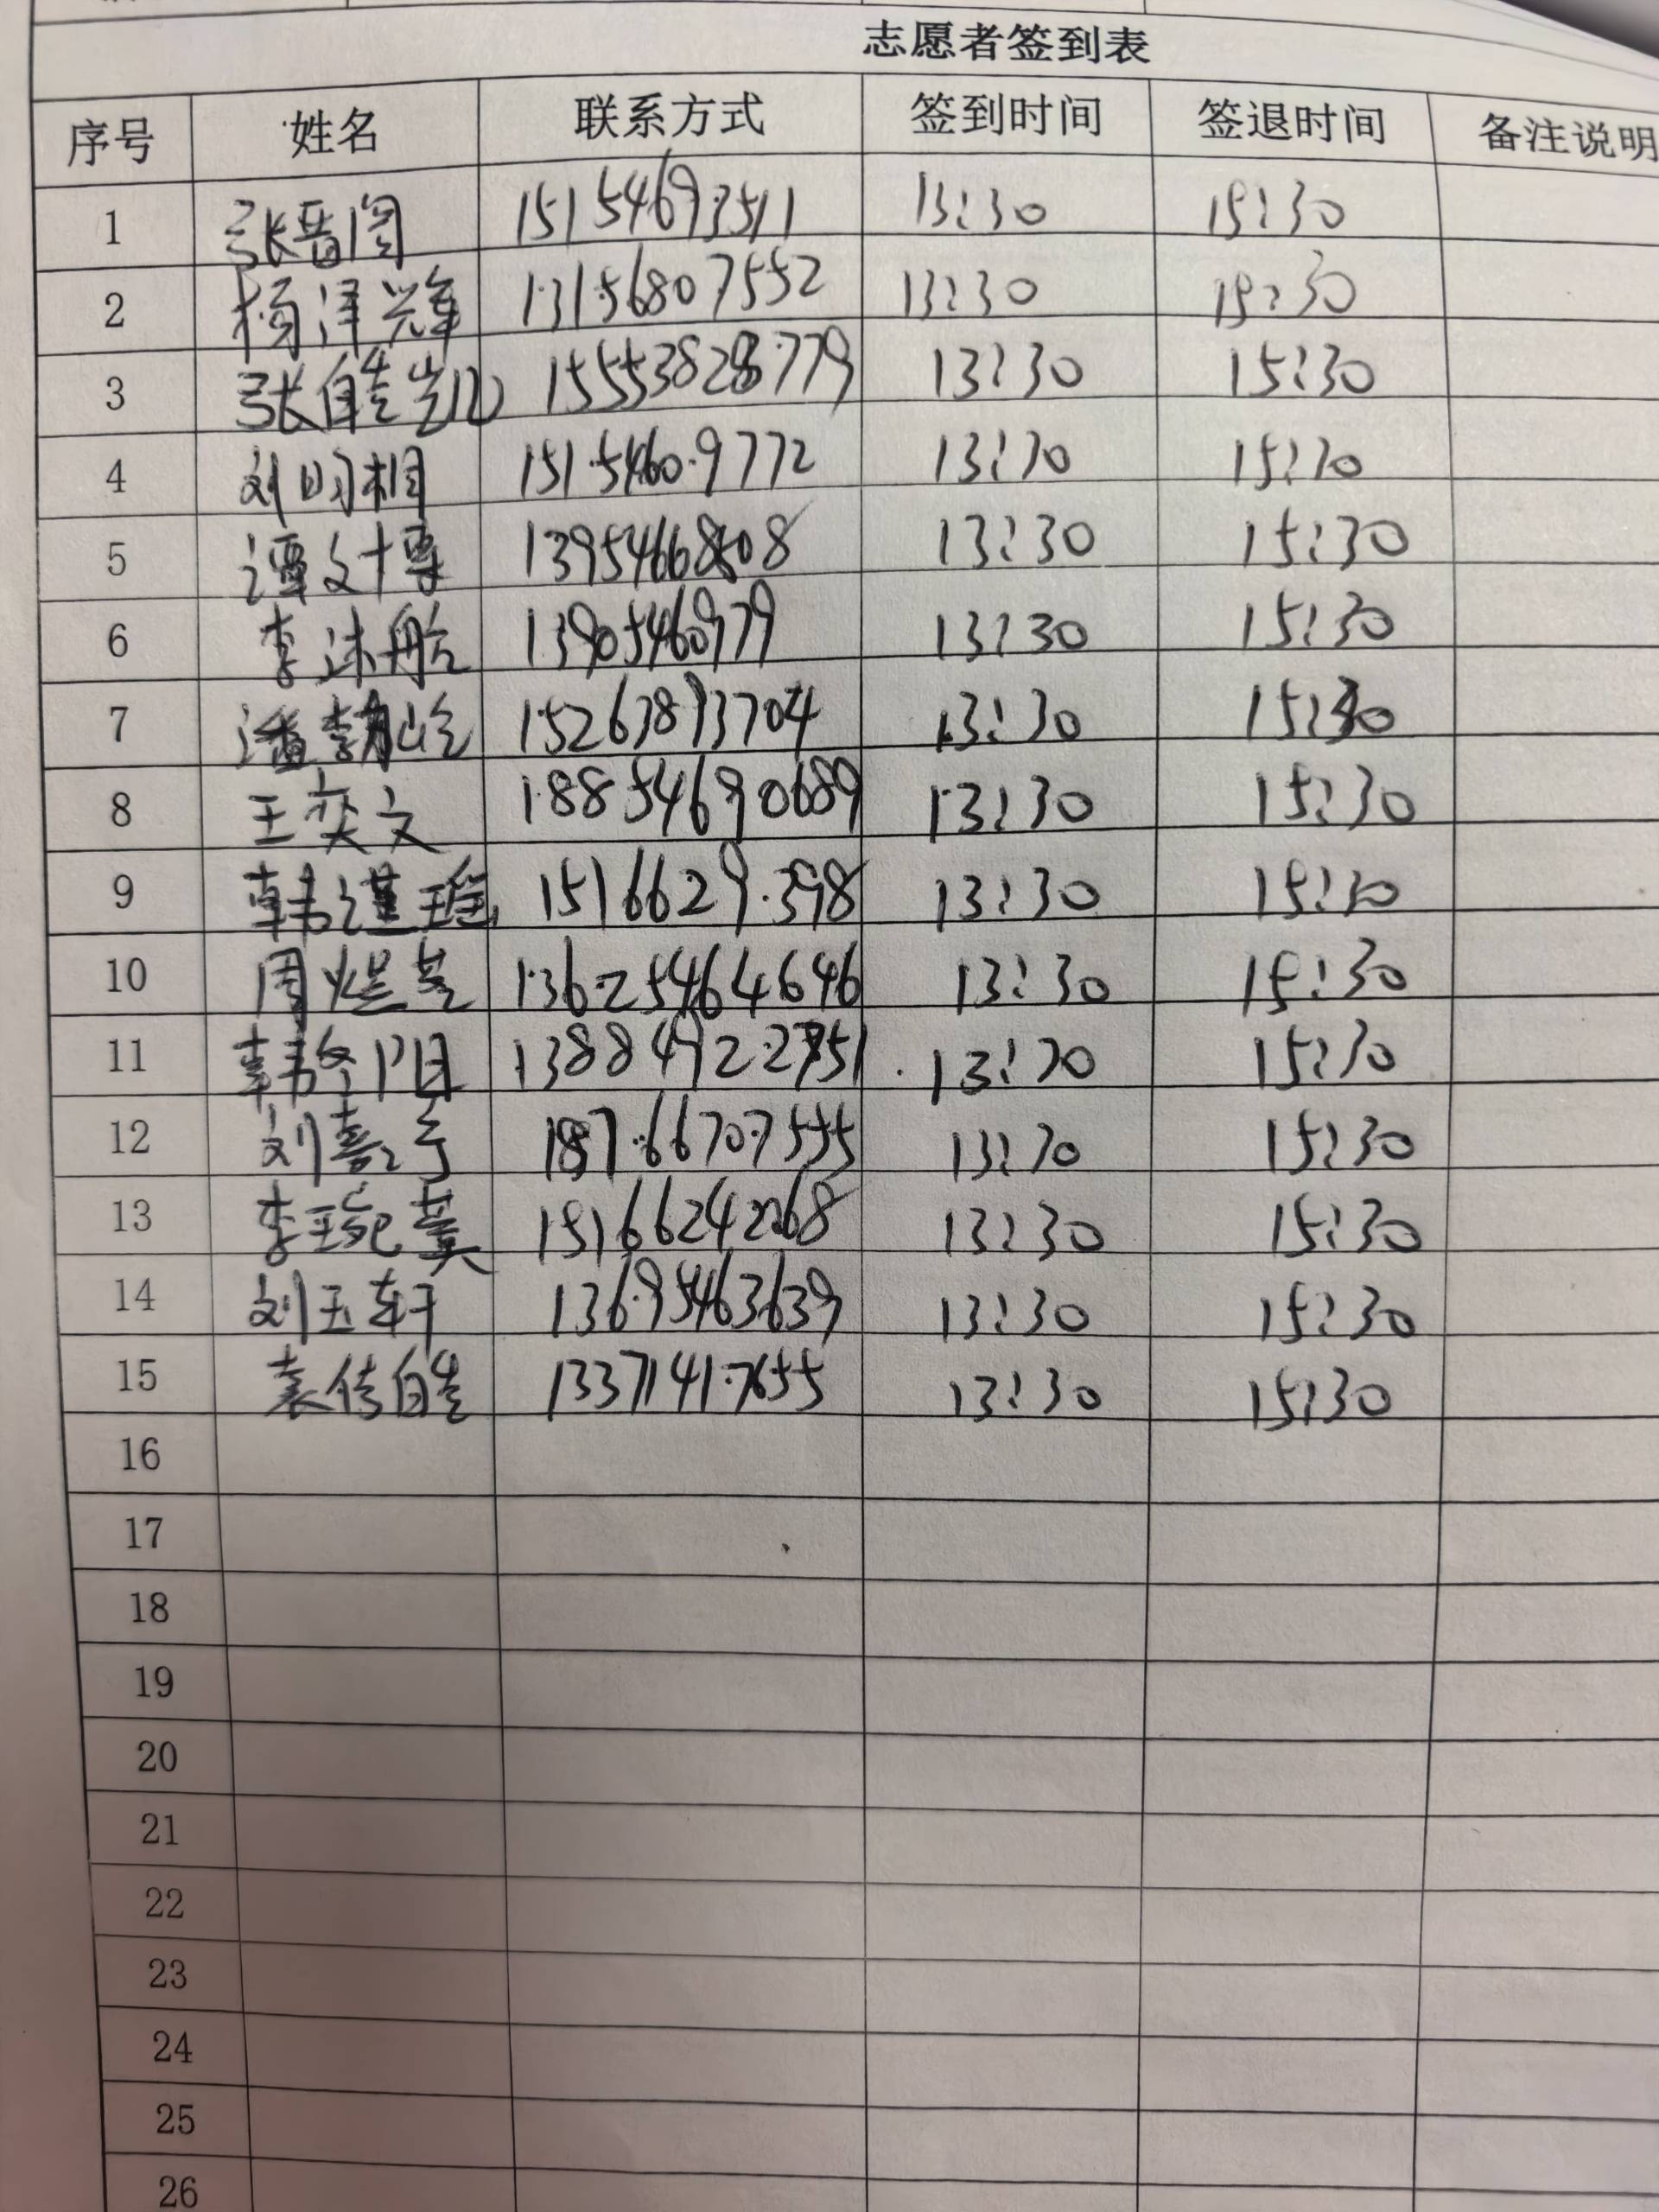 志愿者签到表
序号 姓名 联系方式 签到时间 签退时间 备注说明
1 张晋阁 15154693511 13:30 15:30
2 杨泽辉 13156807552 13:30 15:30
3 张皓岚 15553828779 13:30 15:30
4 刘明桐 15154609772 13:30 15:30
5 谭文博 13954668508 13:30 15:30
6 李沐航 13905460979 13:30 15:30
7 潘 15263893704 13:30 15:30
8 王奕文 18854690689 13:30 15:30
9 韩谨瑶 1516629398 13:30 15:30
10 周煜 13625464646 13:30 15:30
11 韩 13:30 15:30
12 刘嘉 18766707555 13:30 15:30
13 李琬 15166242268 13:30 15:30
14 刘玉轩 13695463639 13:30 15:30
15 袁传皓 13371417655 13:30 15:30
16
17
18
19
20
21
22
23
24
25
26